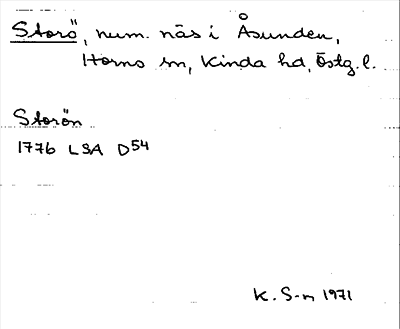 Storö, num. näs i Åsunden,
Horns sn, Kinda hd, Östg. l.
Storön
1776 LSA D54
K. S-n 1971